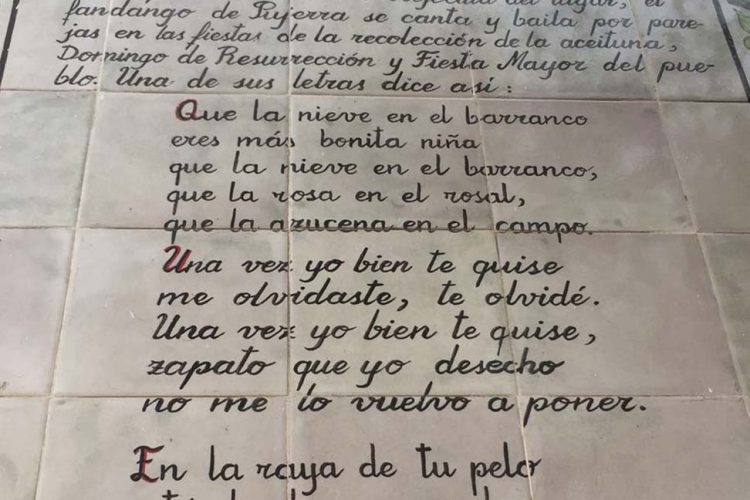 del lugar, el
fandango de Pujerra se canta y baila por pare-
jas en las fiestas de la recolección de la aceituna,
Domingo de Resurrección y Fiesta Mayor del pue-
blo. Una de sus letras dice así:
Que la nieve en el barranco
eres más bonita niña
que la nieve en el barranco,
que la rosa en el rosal,
que la azucena en el campo.
Una vez yo bien te quise
me olvidaste, te olvidé.
Una vez yo bien te quise,
zapato que yo desecho
no me lo vuelvo a poner.
En la raya de tu pelo